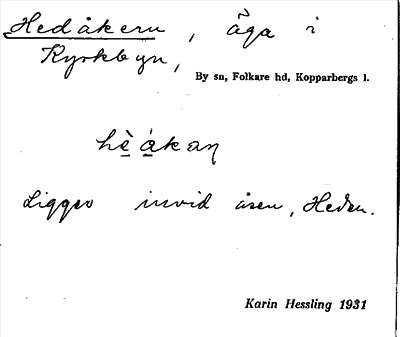 Hedåkern, åga i
Kyrkbyn,
By sn, Folkare hd, Kopparbergs l.
hè̱ á̱kaŋ
Ligger invid åsen, Heden.
Karin Hessling 1931